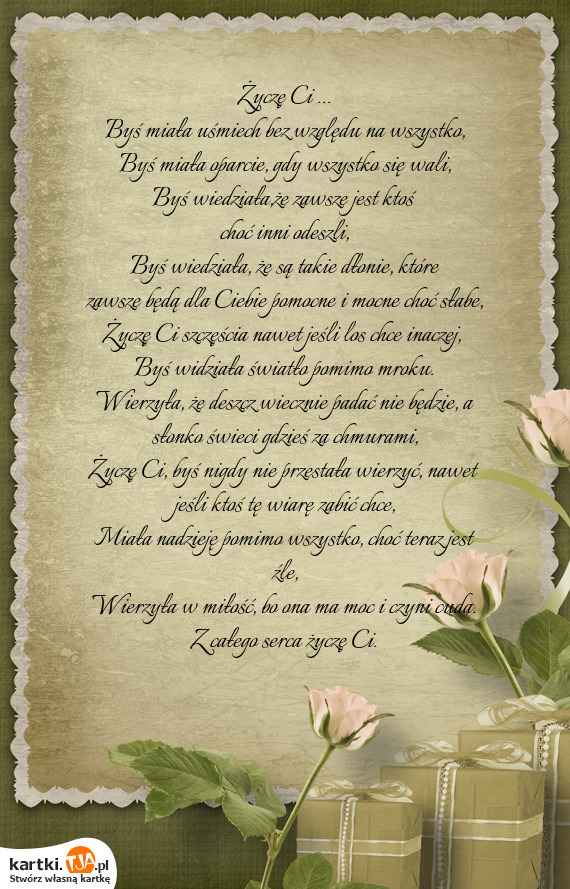 Życzę Ci ...
Byś miała uśmiech bez względu na wszystko,
Byś miała oparcie, gdy wszystko się wali,
Byś wiedziała,że zawsze jest ktoś
choć inni odeszli,
Byś wiedziała, że są takie dłonie, które
zawsze będą dla Ciebie pomocne i mocne choć słabe,
Życzę Ci szczęścia nawet jeśli los chce inaczej,
Byś widziała światło pomimo mroku.
Wierzyła, że deszcz wiecznie padać nie będzie, a
słonko świeci gdzieś za chmurami,
Życzę Ci, byś nigdy nie przestała wierzyć, nawet
jeśli ktoś tę wiarę zabić chce,
Miała nadzieję pomimo wszystko, choć teraz jest
źle,
Wierzyła w miłość, bo ona ma moc i czyni cuda.
Z całego serca życzę Ci.
kartki.TJA.pl
Stwórz własną kartkę